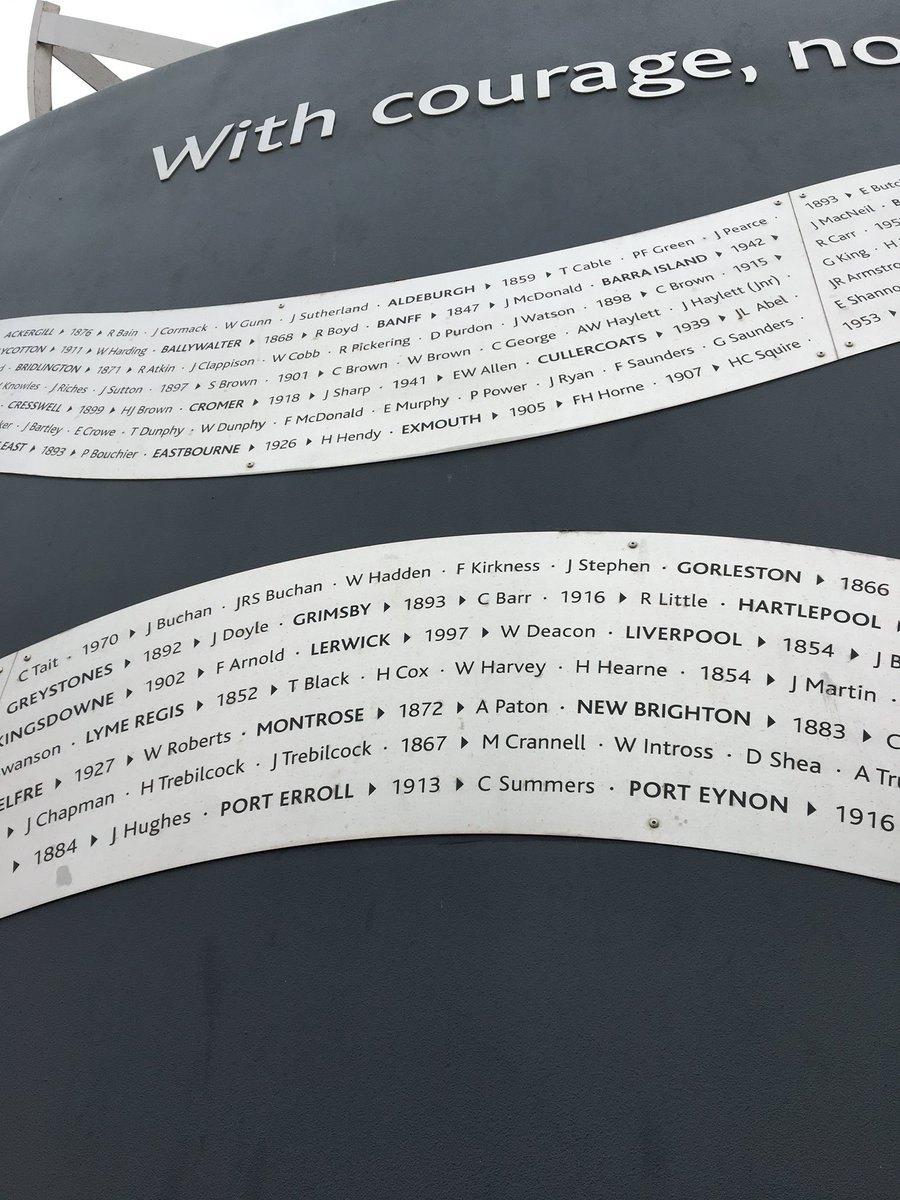 With courage, no
ACKERGILL ▸ 1876 ▸ R Bain · J Cormack · W Gunn · J Sutherland · ALDEBURGH ▸ 1859 ▸ T Cable · PF Green · J Pearce ·
YCOTTON ▸ 1911 ▸ W Harding · BALLYWALTER ▸ 1868 ▸ R Boyd · BANFF ▸ 1847 ▸ J McDonald · BARRA ISLAND ▸ 1942 ▸
d · BRIDLINGTON ▸ 1871 ▸ R Atkin · J Clappison · W Cobb · R Pickering · D Purdon · J Watson · 1898 ▸ C Brown · 1915 ▸
Knowles · J Riches · J Sutton · 1897 ▸ S Brown · 1901 ▸ C Brown · W Brown · C George · AW Haylett · J Haylett (Jnr) ·
· CRESSWELL ▸ 1899 ▸ HJ Brown · CROMER ▸ 1918 ▸ J Sharp · 1941 ▸ EW Allen · CULLERCOATS ▸ 1939 ▸ JL Abel ·
ker · J Bartley · E Crowe · T Dunphy · W Dunphy · F McDonald · E Murphy · P Power · J Ryan · F Saunders · G Saunders ·
EAST ▸ 1893 ▸ P Bouchier · EASTBOURNE ▸ 1926 ▸ H Hendy · EXMOUTH ▸ 1905 ▸ FH Horne · 1907 ▸ HC Squire ·
1893 ▸ E Butc
J MacNeil · B
R Carr · 195
G King · H
JR Armstro
E Shanno
1953 ▸
C Tait · 1970 ▸ J Buchan · JRS Buchan · W Hadden · F Kirkness · J Stephen · GORLESTON ▸ 1866
GREYSTONES ▸ 1892 ▸ J Doyle · GRIMSBY ▸ 1893 ▸ C Barr · 1916 ▸ R Little · HARTLEPOOL ▸
KINGSDOWNE ▸ 1902 ▸ F Arnold · LERWICK ▸ 1997 ▸ W Deacon · LIVERPOOL ▸ 1854 ▸ J B
wanson · LYME REGIS ▸ 1852 ▸ T Black · H Cox · W Harvey · H Hearne · 1854 ▸ J Martin ·
ELFRE ▸ 1927 ▸ W Roberts · MONTROSE ▸ 1872 ▸ A Paton · NEW BRIGHTON ▸ 1883 ▸ C
▸ J Chapman · H Trebilcock · J Trebilcock · 1867 ▸ M Crannell · W Intross · D Shea · A Tru
▸ 1884 ▸ J Hughes · PORT ERROLL ▸ 1913 ▸ C Summers · PORT EYNON ▸ 1916